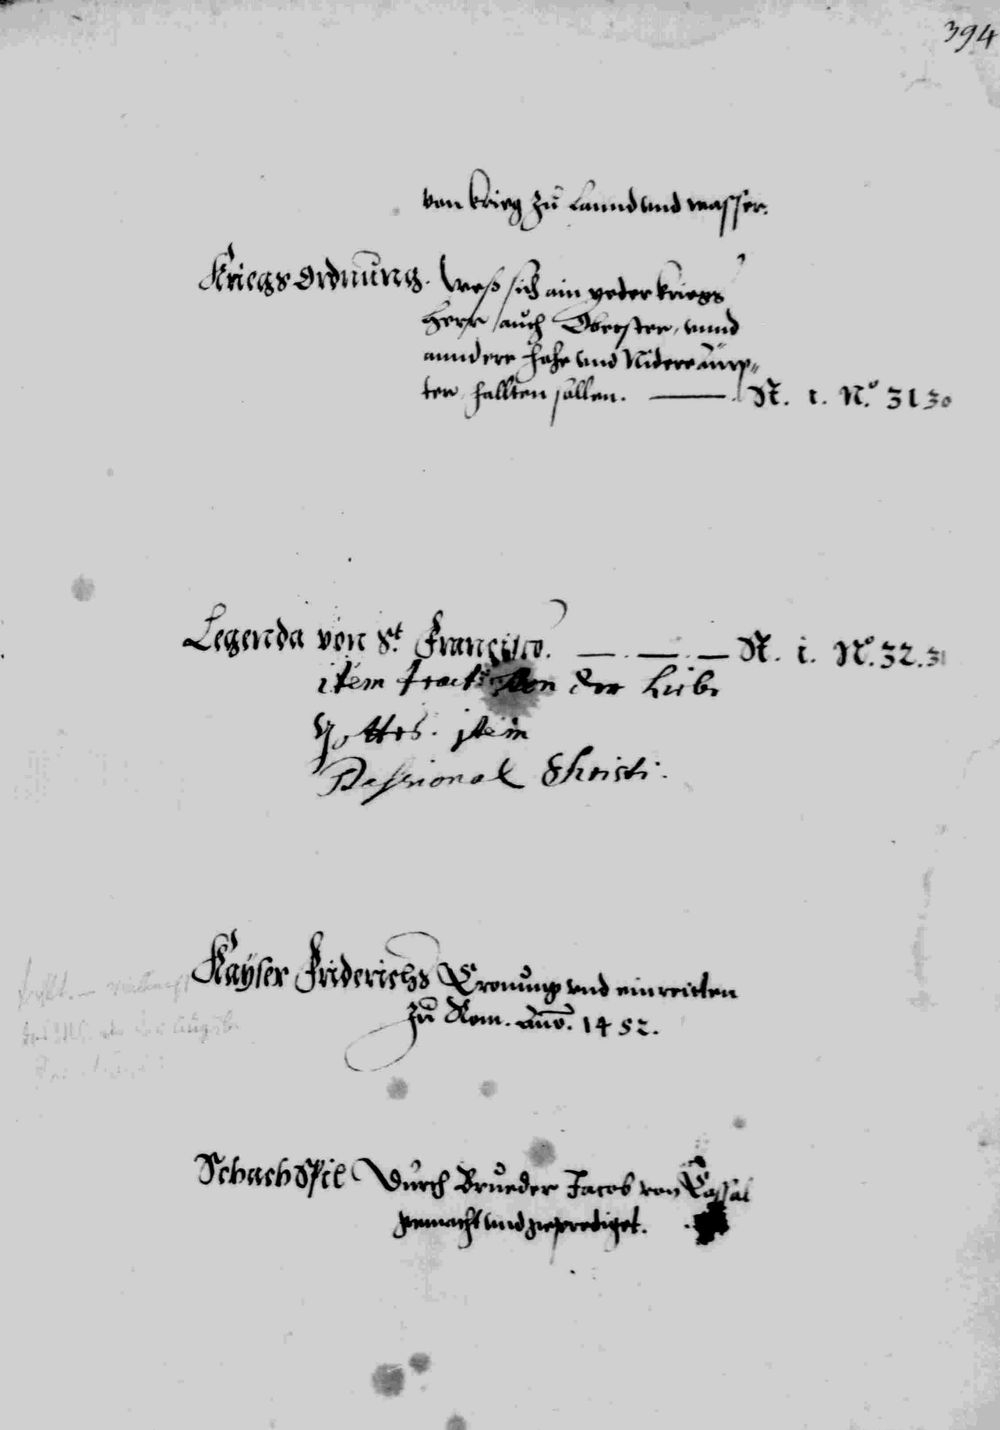 394
von krieg zu Lannd vnd wasser.
Kriegs Ordnung. Weß sich ain yeder kriegs
Herr auch Oberster, vnnd
anndere hohe vnd Nidere ämp=
ter hallten sollen. — St. i. N.o 31 30
Legenda von St. Francisco. — . — . — St. i. No. 32. 31
item tract von der Liebe
gottes. item
Passional Christi.
Kayser Friderichs Cronung vnd einreitten
zu Rom. Anno. 1452.
Schach Spil Durch Brueder Jacob von Cassal
gemacht vnd geprediget.